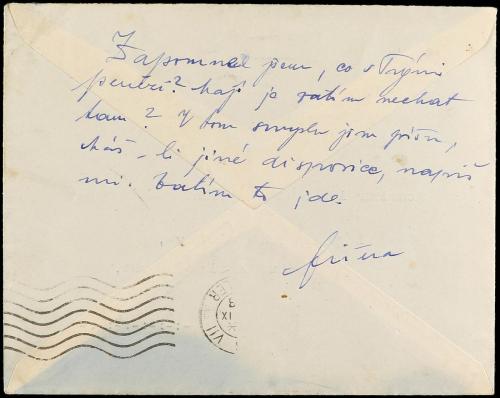 Zapomněl jsem, co s Tvými
penězi? Mají je zatím nechat
tam? V tom smyslu jsem píšu,
Máš-li jiné disposice, napiš
mi. Zatím to jde.
VII
IX